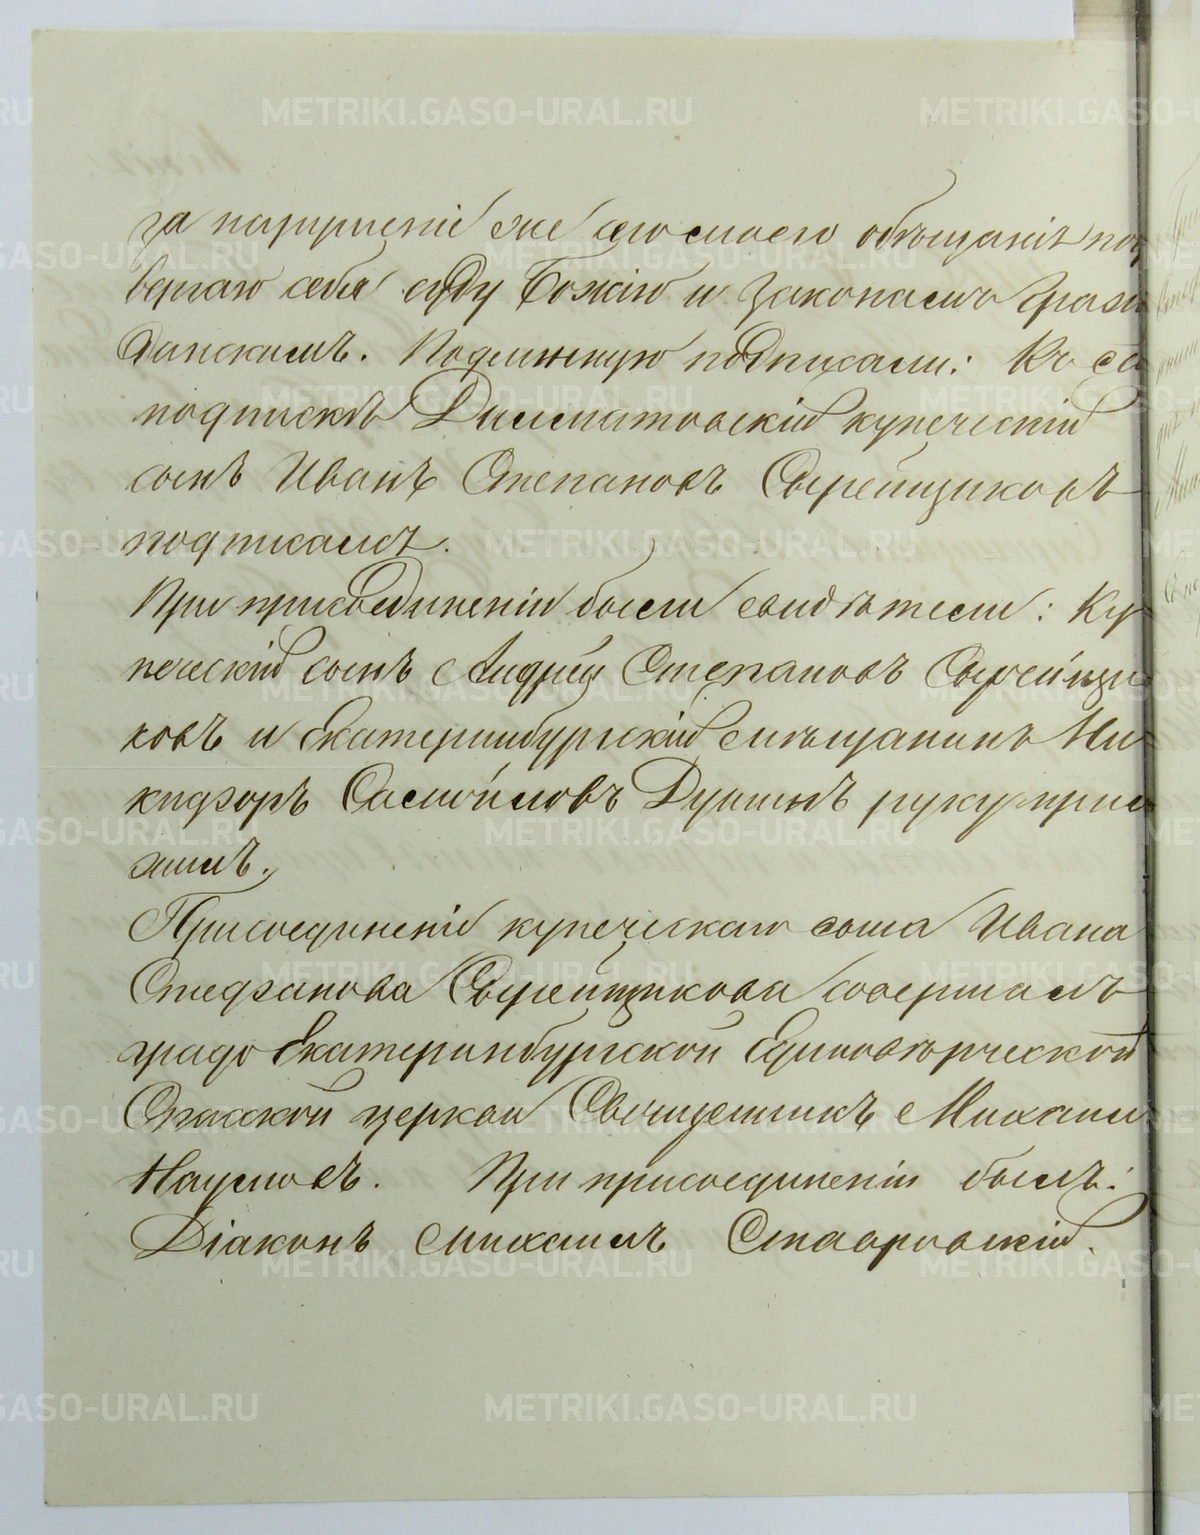 за нарушеніе же сего моего обѣщанія под
вергаю себя суду Божію и законамъ граж
данскимъ. Подлинную подписали: Къ се
подпискѣ Далматовскій купеческій
сынъ Иванъ Степановъ Сырейщиковъ
подписалъ.
При присоединеніи были свидѣтели: Ку
печескій сынъ Андрей Степановъ Сырейщи
ковъ и Екатеринбургскій мѣщанинъ Ни
кифоръ Самойловъ руку прило
жилъ.
Присоединеніе купеческаго сына Ивана
Стефанова Сырейщикова совершалъ
градо Екатеринбургской Единовѣрческой
Спасской церкви Священникъ Михаилъ
Наумовъ. При присоединеніи былъ:
Діаконъ Михаилъ Ставровскій.
METRIKI.GASO-URAL.RU